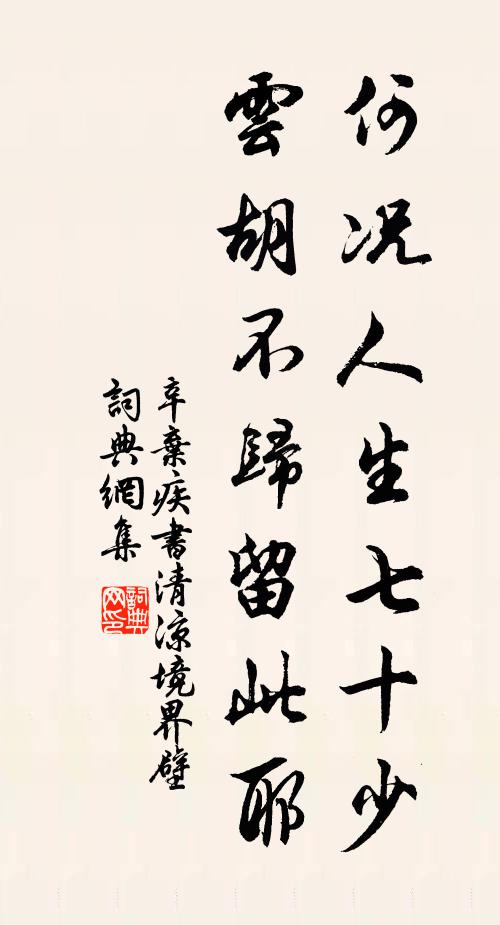 何況人生七十少
雲胡不歸留此耶
辛棄疾書清涼境界壁
詞典網集
詞典网印